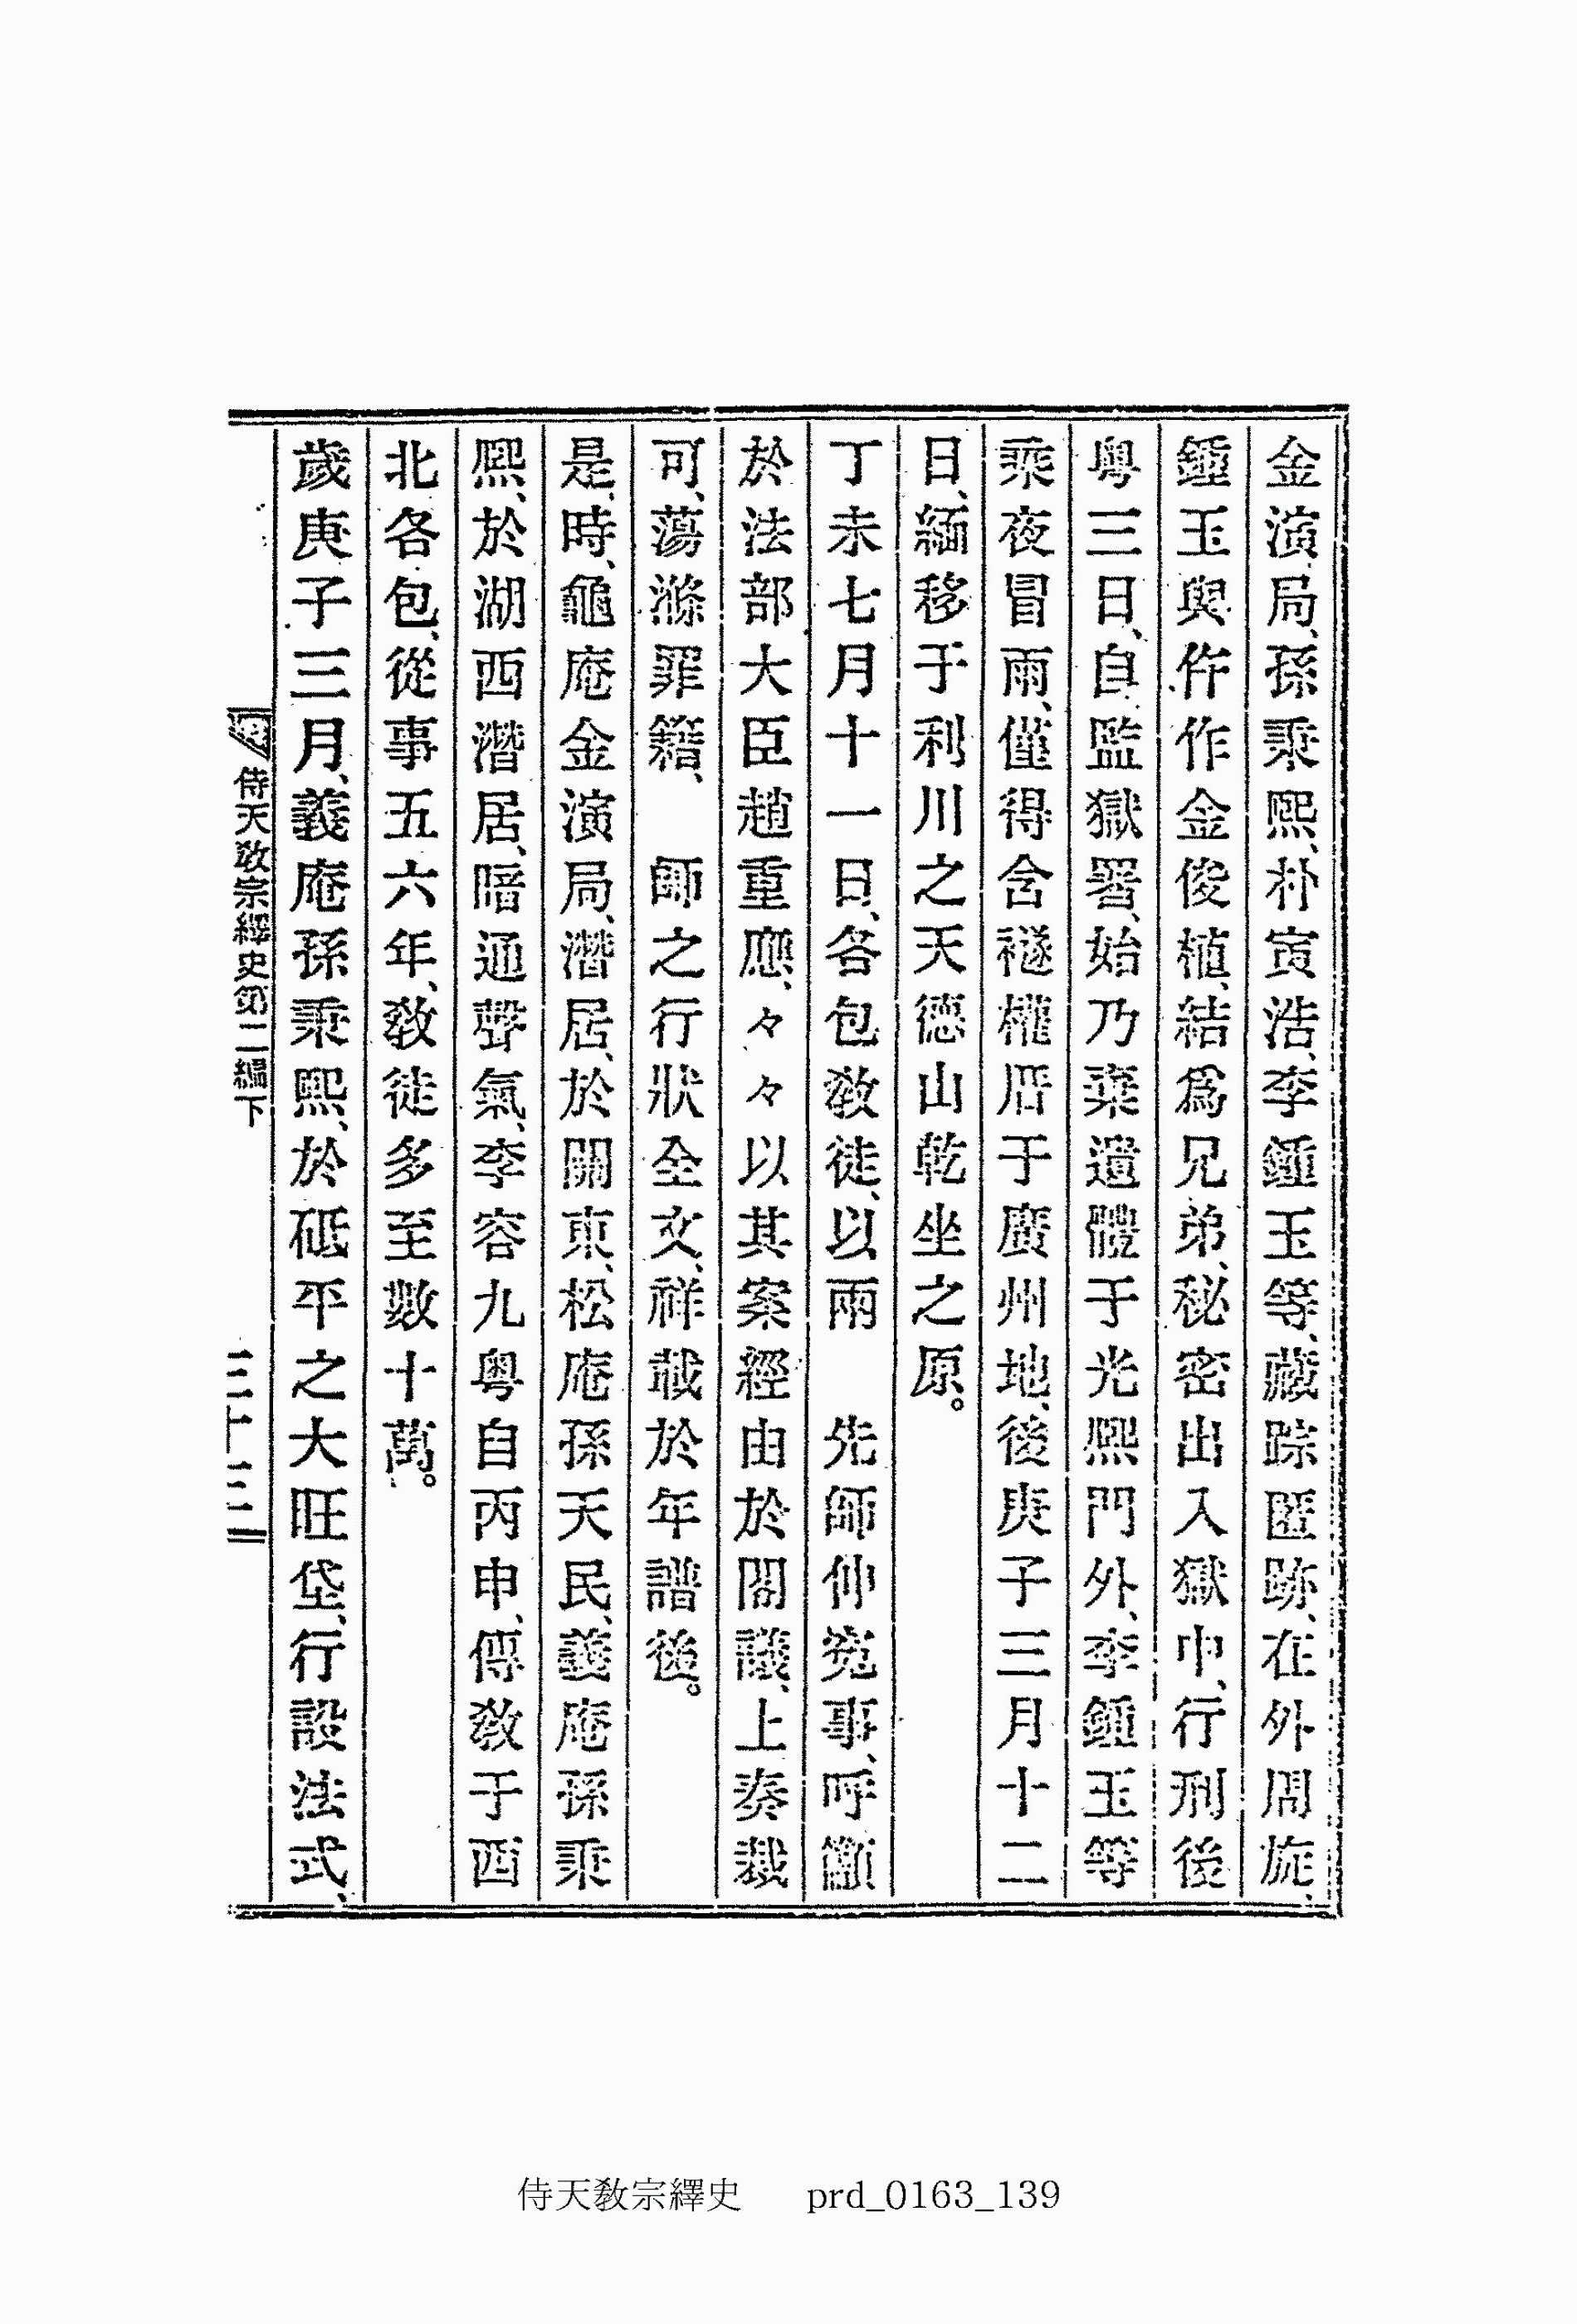 金演局、孫秉熙、朴寅浩、李鍾玉等、藏踪匿跡、在外周旋、
鍾玉與仵作金俊植、結爲兄弟、秘密出入獄中、行刑後
粤三日、自監獄署、始乃棄遺體于光熙門外、李鍾玉等
乘夜冒雨、僅得舍襚權厝于廣州地、後庚子三月十二
日、緬移于利川之天德山乾坐之原。
丁未七月十一日、各包教徒、以兩　先師伸寃事、呼籲
於法部大臣趙重應、々々以其案經由於閣議、上奏裁
可、蕩滌罪籍、　師之行狀全文、祥載於年譜後。
是時、龜庵金演局、潛居於關東、松庵孫天民、義庵孫秉
熙、於湖西潛居、暗通聲氣、李容九粤自丙申、傳教于西
北各包、從事五六年、教徒多至數十萬。
歲庚子三月、義庵孫秉熙、於砥平之大旺垈、行設法式、
侍天教宗繹史第二編下　三十三
侍天教宗繹史　prd_0163_139